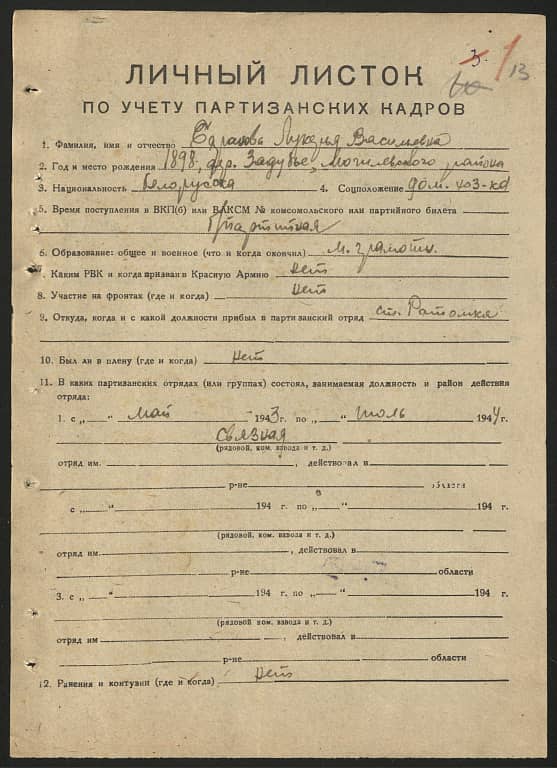 13
ЛИЧНЫЙ ЛИСТОК
ПО УЧЕТУ ПАРТИЗАНСКИХ КАДРОВ
1. Фамилия, имя и отчество Лукерья Васильевна
2. Год и место рождения 1898, дер. Задубье, Могилевского района
3. Национальность белоруска 4. Соцположение дом. хоз-ка
5. Время поступления в ВКП(б) или ВЛКСМ № комсомольского или партийного билета
6. Образование: общее и военное (что и когда окончил) м. грамотн.
7. Каким РВК и когда призван в Красную Армию нет
8. Участие на фронтах (где и когда) нет
9. Откуда, когда и с какой должности прибыл в партизанский отряд ст. Ратомка
10. Был ли в плену (где и когда) нет
11. В каких партизанских отрядах (или группах) состоял, занимаемая должность и район действия
отряда:
1. с „ “ май 1943 г. по „ “ июль 1944 г.
связная
(рядовой, ком. взвода и т. д.)
отряд им. , действовал в
р-не области
с „ “ 194 г. по „ “ 194 г.
(рядовой, ком. взвода и т. д.)
отряд им. , действовал в
р-не области
3. с „ “ 194 г. по „ “ 194 г.
(рядовой, ком. взвода и т. д.)
отряд им , действовал в
р-не области
12. Ранения и контузии (где и когда) нет